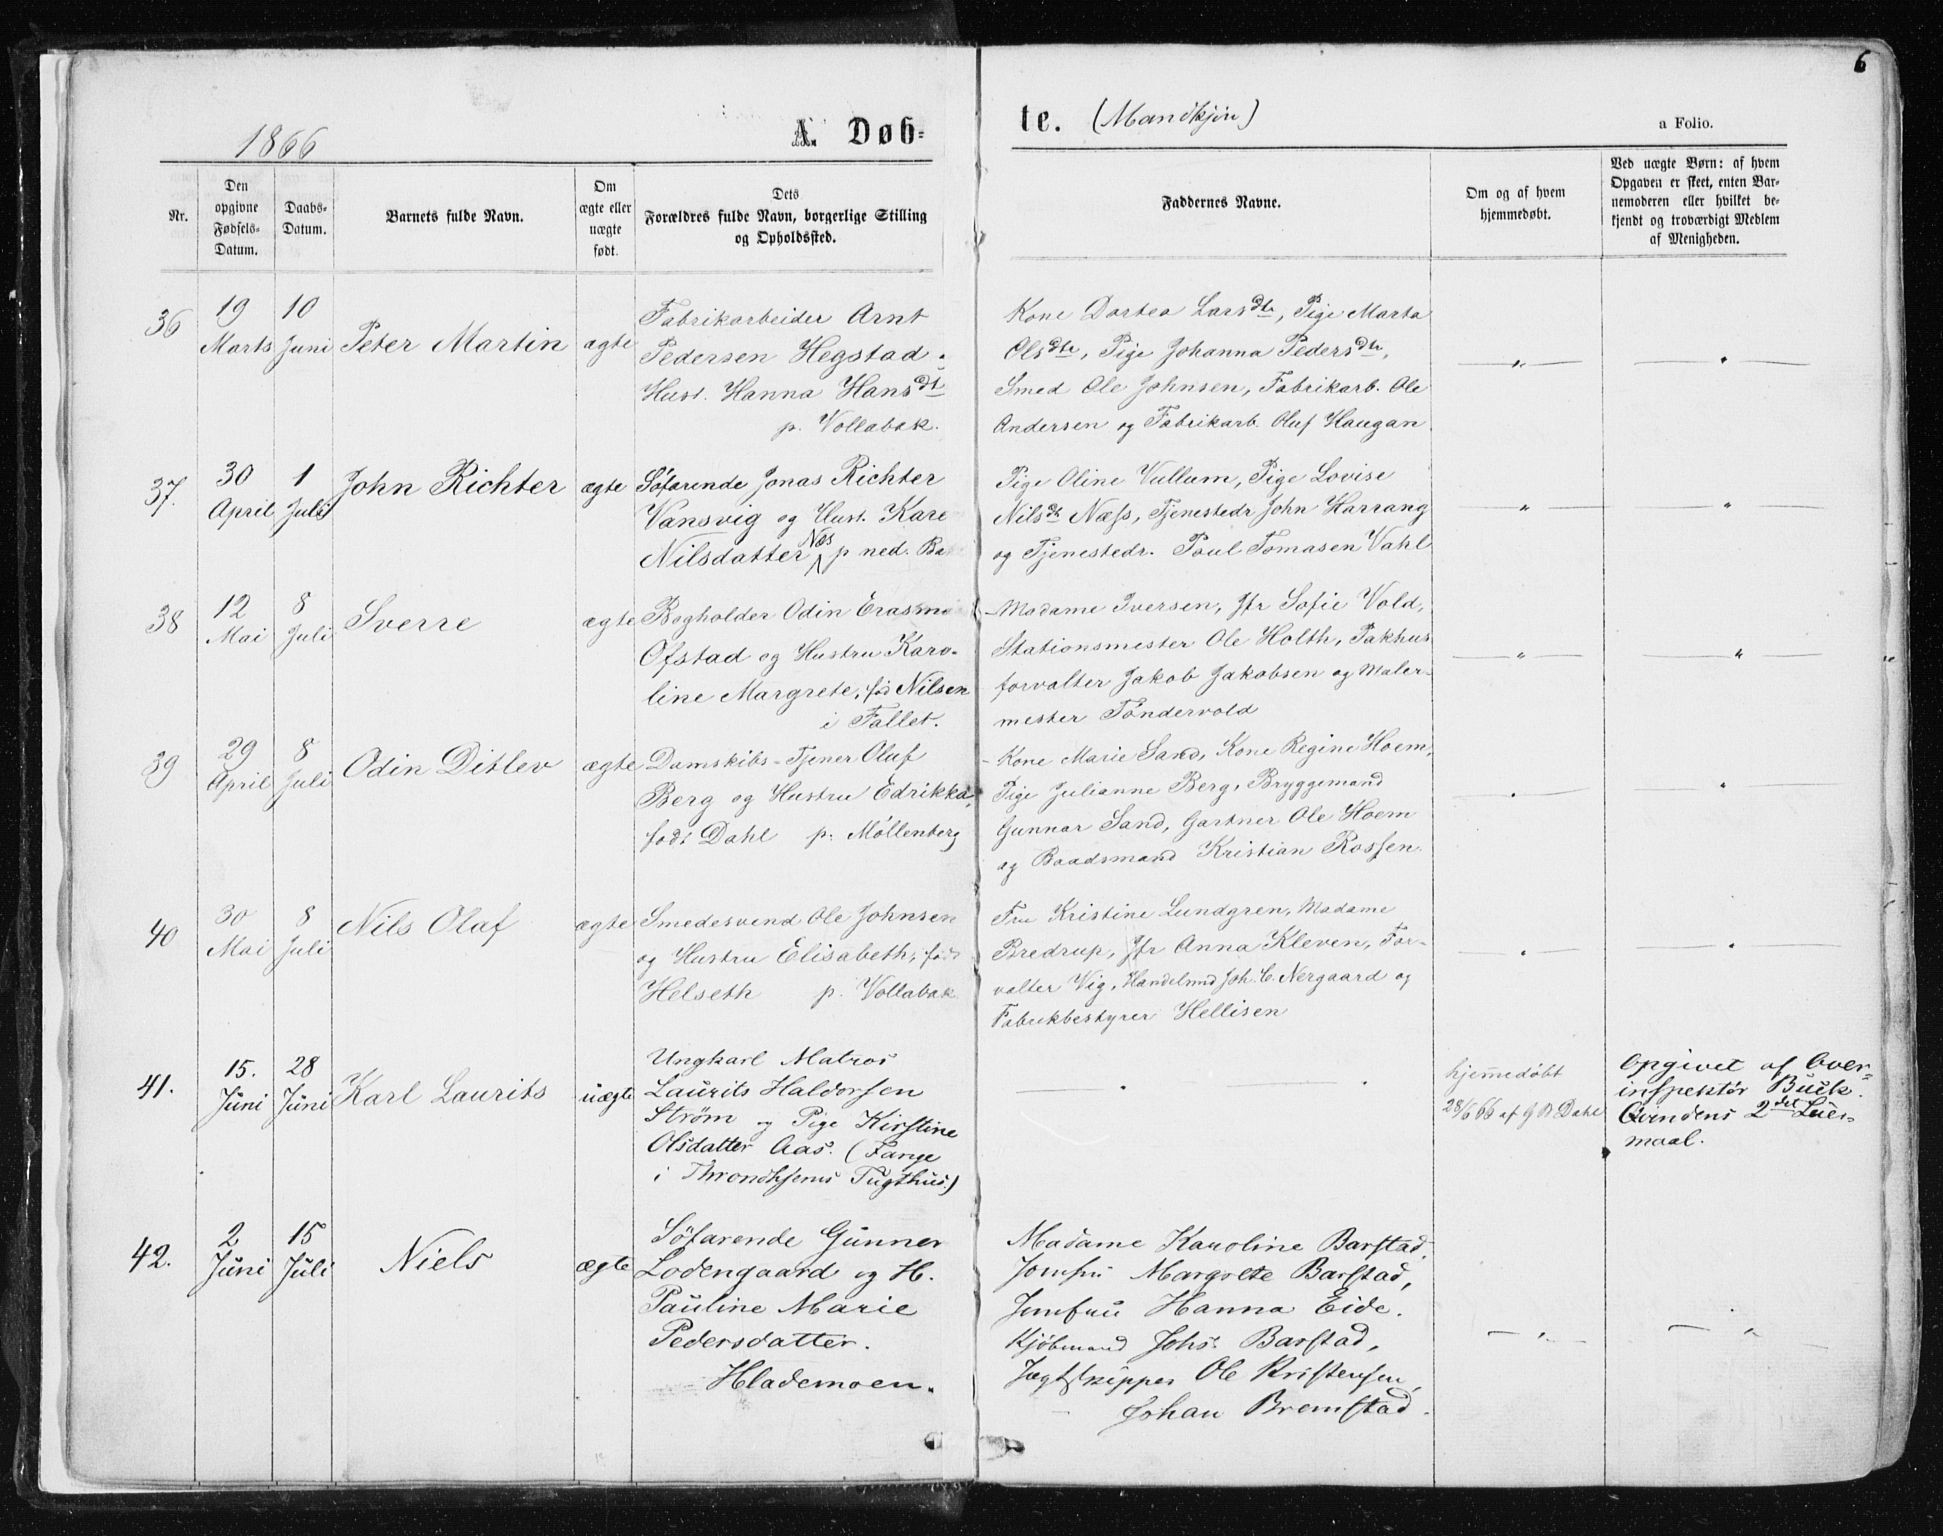 6
1866
A. Døb-
te. (Mandkjøn)
a Folio.
Nr.
Den
opgivne
Fødsels-
Datum.
Daabs-
Datum.
Barnets fulde Navn.
Om
ægte eller
uægte
født.
Dets
Forældres fulde Navn, borgerlige Stilling
og Opholdssted.
Faddernes Navne.
Om og af hvem
hjemmedøbt.
Ved uægte Børn: af hvem
Opgaven er skeet, enten Bar-
nemoderen eller hvilket be-
kjendt og troværdigt Medlem
af Menigheden.
36
19
Marts
10
Juni
Peter Martin
ægte
Fabrikarbeider Arnt
Pedersen Hegstad.
Hust. Hanna Hansdt
p. Vollabak.
Kone Dortea Larsdtr, Pige Marta
Olsdtr, Pige Johanna Pedersdtr,
Smed Ole Johnsen, Fabrikarb. Ole
Andersen og Fabrikarb. Oluf Haugan
37.
30
April
1
Juli
John Richter
ægte
Söfarende Jonas Richter
Vansvig og Hust. Kare
Nilsdatter Næs p ned. Bak
Pige Oline Vullum, Pige Lovise
Nilsdt Næss, Tjenestedr John Harrang
og Tjenestedr. Poul Tomasen Vahl
38
12
Mai
8
Juli
Sverre
ægte
Bogholder Odin Erasm
Ofstad og Hustru Karo-
line Margrete, fød Nilsen
i Fallet.
Madame Iversen, Jfr Sofie Vold,
Stationsmester Ole Holth, Pakhus
forvalter Jakob Jakobsen og Maler-
mester Töndervold
39
29
April
8
Juli
Odin Ditlev
ægte
Damskibs-Tjener Oluf
Berg og Hustru Edrikka,
født Dahl p. Möllenberg
Kone Marie Sand, Kone Regine Hoem,
Pige Julianne Berg, Bryggemand
Gunnar Sand, Gartner Ole Hoem
og Baadsmand Kristian Rossen.
40
30
Mai
8
Juli
Nils Olaf
ægte
Smedesvend Ole Johnsen
og Hustru Elisabeth, født
Helseth p. Vollabak
Fru Kristine Lundgren, Madame
Bredrup, Jfr Anna Kleven, For-
valter Vig, Handelsmd Joh. C. Nergaard og
Fabrikbestyrer Hellisen
41.
15.
Juni
28
Juni
Karl Laurits
uægte
Ungkarl Matros
Laurits Haldorsen
Strøm og Pige Kirstine
Olsdatter Aas. (Fange
i Throndhjems Tugthus.)
hjemmedøbt
28/6 66 af G B Dahl
Opgivet af Over-
inspektör Buck.
Qvindens 2det Leier-
maal.
42.
2
Juni
15
Juli
Niels
ægte
Söfarende Gunner
Lodengaard og H.
Pauline Marie
Pedersdatter.
Hlademoen.
Madame Karoline Barstad,
Jomfru Margrete Barstad,
Jomfru Hanna Eide.
Kjöbmand Johs. Barstad,
Jægtskipper Ole Kristensen,
Johan Bremstad.